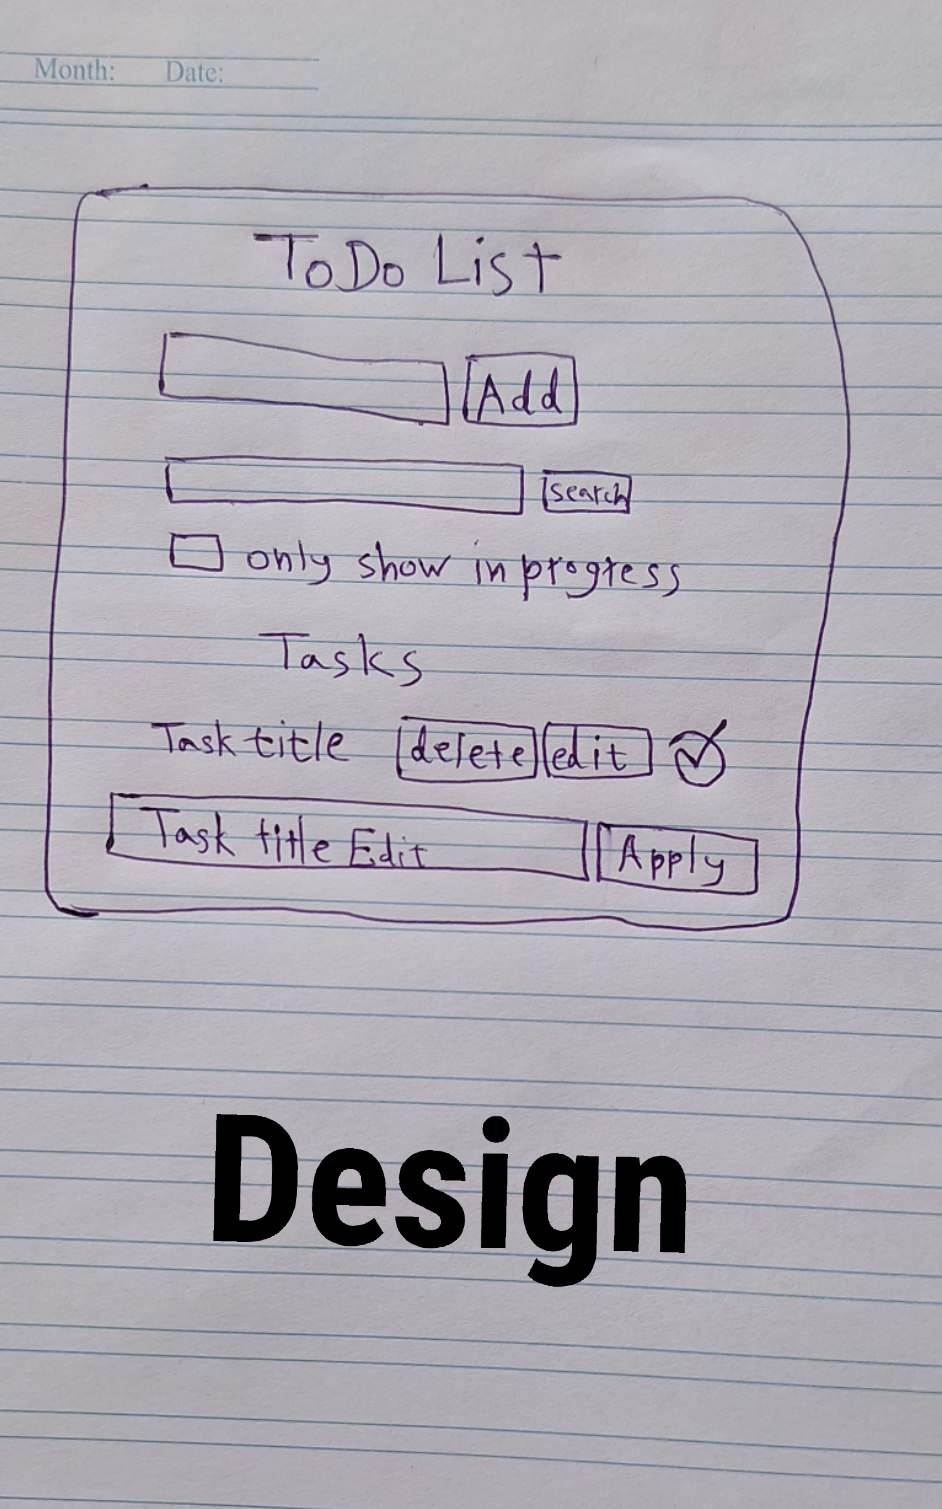 Month: Date:
ToDo List
Add
search
only show in progress
Tasks
Task title delete edit
Task title Edit Apply
Design